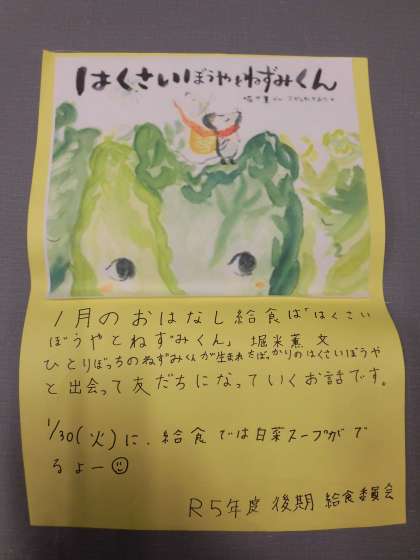 はくさいぼうやとねずみくん
1月のおはなし給食は「はくさい
ぼうやとねずみくん」 堀米薫 文
ひとりぼっちのねずみくんが生まれたばっかりのはくさいぼうや
と出会って友だちになっていくお話です。
1/30(火)に、給食では白菜スープがで
るよー☺
R5年度 後期 給食委員会